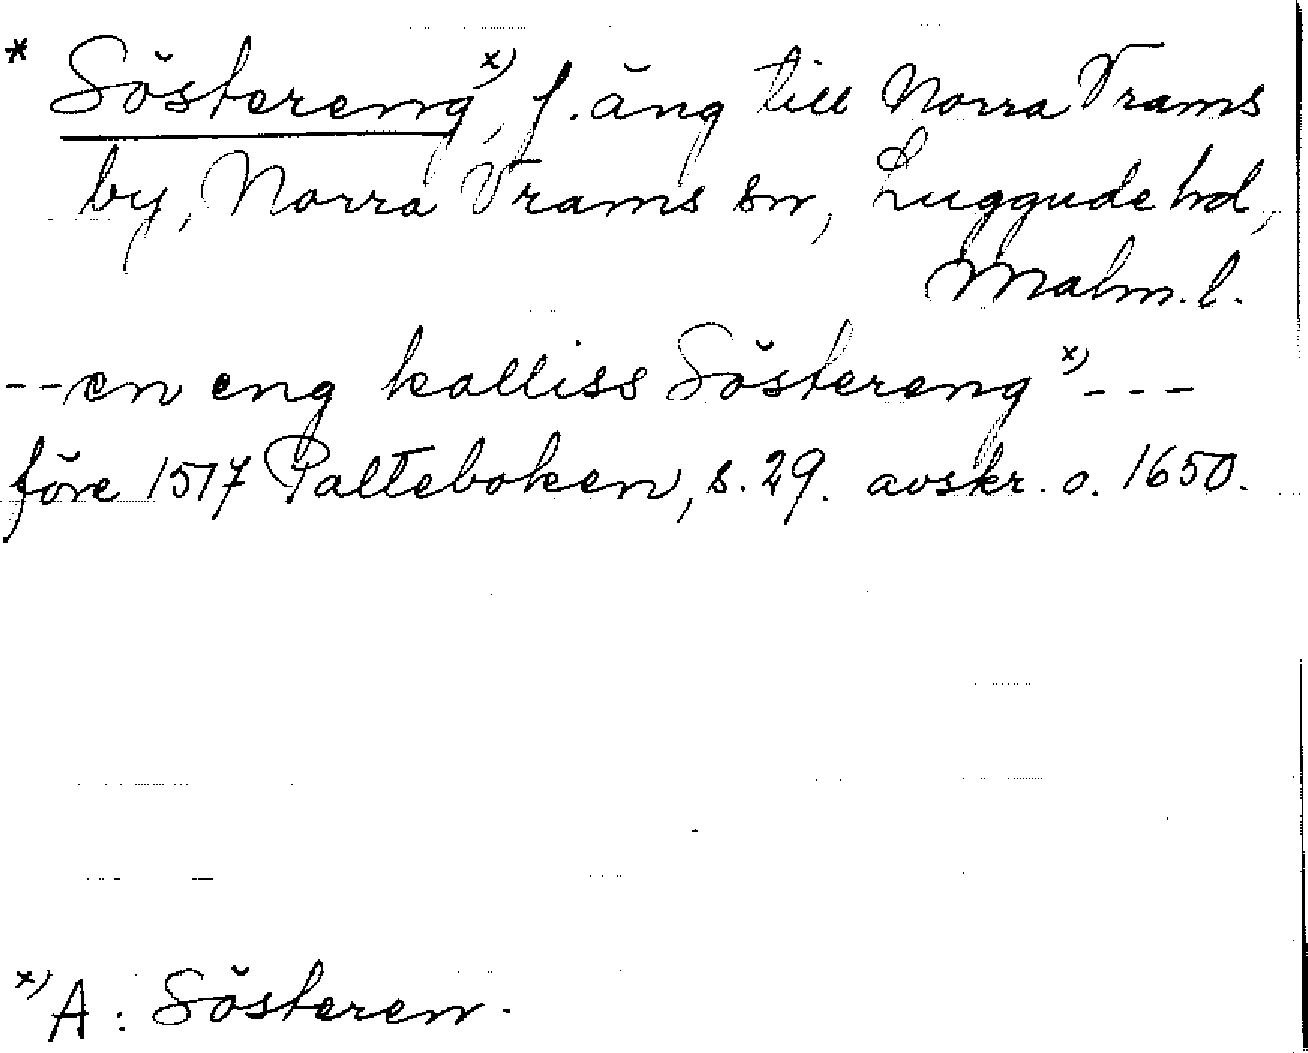 * Söstereng x), f. äng till Norra Vrams
by, Norra Vrams sn, Luggude hd,
Malm. l.
--en eng kalliss Söstereng x) ---
före 1517 Palteboken, s. 29. avskr. o. 1650.
x) A: Sösteren.